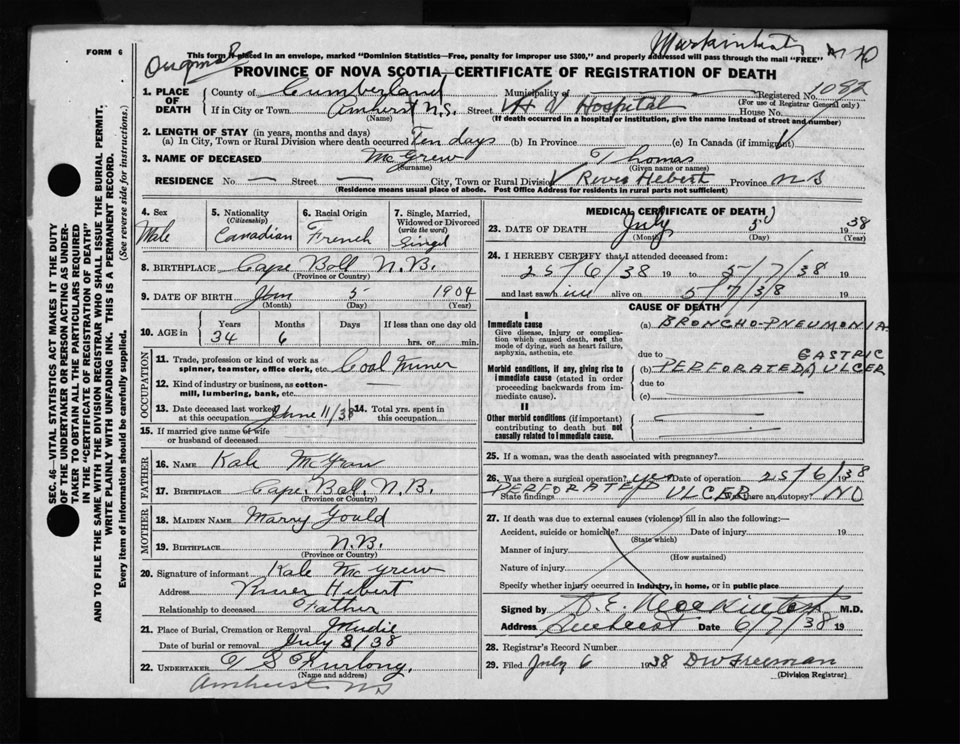 FORM 6
This form if placed in an envelope, marked "Dominion Statistics—Free, penalty for improper use $300," and properly addressed will pass through the mail "FREE"
PROVINCE OF NOVA SCOTIA, CERTIFICATE OF REGISTRATION OF DEATH
1. PLACE OF DEATH
County of Cumberland Municipality of Registered No. 1082
(For use of Registrar General only)
If in City or Town Amherst N.S. Street H V Hospital House No.
(Name) (If death occurred in a hospital or institution, give the name instead of street and number)
2. LENGTH OF STAY (in years, months and days)
(a) In City, Town or Rural Division where death occurred Ten days (b) In Province (c) In Canada (if immigrant)
3. NAME OF DECEASED McGrew Thomas
(Surname) (Given name or names)
RESIDENCE No. — Street — City, Town or Rural Division River Hebert Province N S
(Residence means usual place of abode. Post Office Address for residents in rural parts not sufficient)
4. Sex
Male
5. Nationality
(Citizenship)
Canadian
6. Racial Origin
French
7. Single, Married, Widowed or Divorced
(write the word)
Singl
8. BIRTHPLACE Cape Boll N.B.
(Province or Country)
9. DATE OF BIRTH Jan 5 1904
(Month) (Day) (Year)
10. AGE in
Years Months Days If less than one day old
34 6 hrs. or min.
OCCUPATION
11. Trade, profession or kind of work as spinner, teamster, office clerk, etc. Coal miner
12. Kind of industry or business, as cotton-mill, lumbering, bank, etc. —
13. Date deceased last worked at this occupation June 11/38 14. Total yrs. spent in this occupation
15. If married give name of wife or husband of deceased
FATHER
16. NAME Kale McGraw
17. BIRTHPLACE Cape Bol. N.B.
(Province or Country)
MOTHER
18. MAIDEN NAME Marry Gould
19. BIRTHPLACE N.B.
(Province or Country)
20. Signature of informant Kale McGrew
Address River Hibert
Relationship to deceased Father
21. Place of Burial, Cremation or Removal
Date of burial or removal July 8/38
22. UNDERTAKER T S Furlong,
(Name and address)
Amherst N S
MEDICAL CERTIFICATE OF DEATH
23. DATE OF DEATH July 5 1938
(Month) (Day) (Year)
24. I HEREBY CERTIFY that I attended deceased from:
25/6/38 19 to 5/7/38 19
and last saw h im alive on 5/7/38 19
CAUSE OF DEATH
I
Immediate cause
Give disease, injury or complication which caused death, not the mode of dying, such as heart failure, asphyxia, asthenia, etc
(a) BRONCHO-PNEUMONIA
due to
Morbid conditions, if any, giving rise to immediate cause (stated in order proceeding backwards from immediate cause).
GASTRIC
(b) PERFORATED ULCER
due to
(c)
II
Other morbid conditions (if important) contributing to death but not causally related to immediate cause.
25. If a woman, was the death associated with pregnancy?
26. Was there a surgical operation? yes Date of operation 25/6/38
State findings PERFORATED ULCER Was there an autopsy? NO
27. If death was due to external causes (violence) fill in also the following:—
Accident, suicide or homicide? Date of injury 19
(State which)
Manner of injury
(How sustained)
Nature of injury
Specify whether injury occurred in industry, in home, or in public place
Signed by M.D.
Address Amherst Date 6/7/38 19
28. Registrar's Record Number
29. Filed July 6 1938 DW Freeman
(Division Registrar)
SEC. 46—VITAL STATISTICS ACT MAKES IT THE DUTY OF THE UNDERTAKER OR PERSON ACTING AS UNDERTAKER TO OBTAIN ALL THE PARTICULARS REQUIRED IN THE "CERTIFICATE OF REGISTRATION OF DEATH" AND TO FILE THE SAME WITH THE DIVISION REGISTRAR WHO SHALL ISSUE THE BURIAL PERMIT.
WRITE PLAINLY WITH UNFADING INK. THIS IS A PERMANENT RECORD.
Every item of information should be carefully supplied. (See reverse side for instructions.)